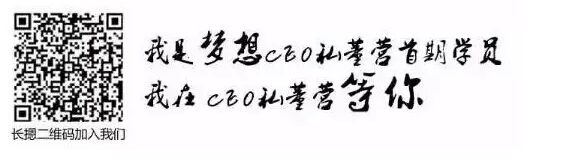 我是梦想CEO私董营首期学员
我在CEO私董营等你
长摁二维码加入我们